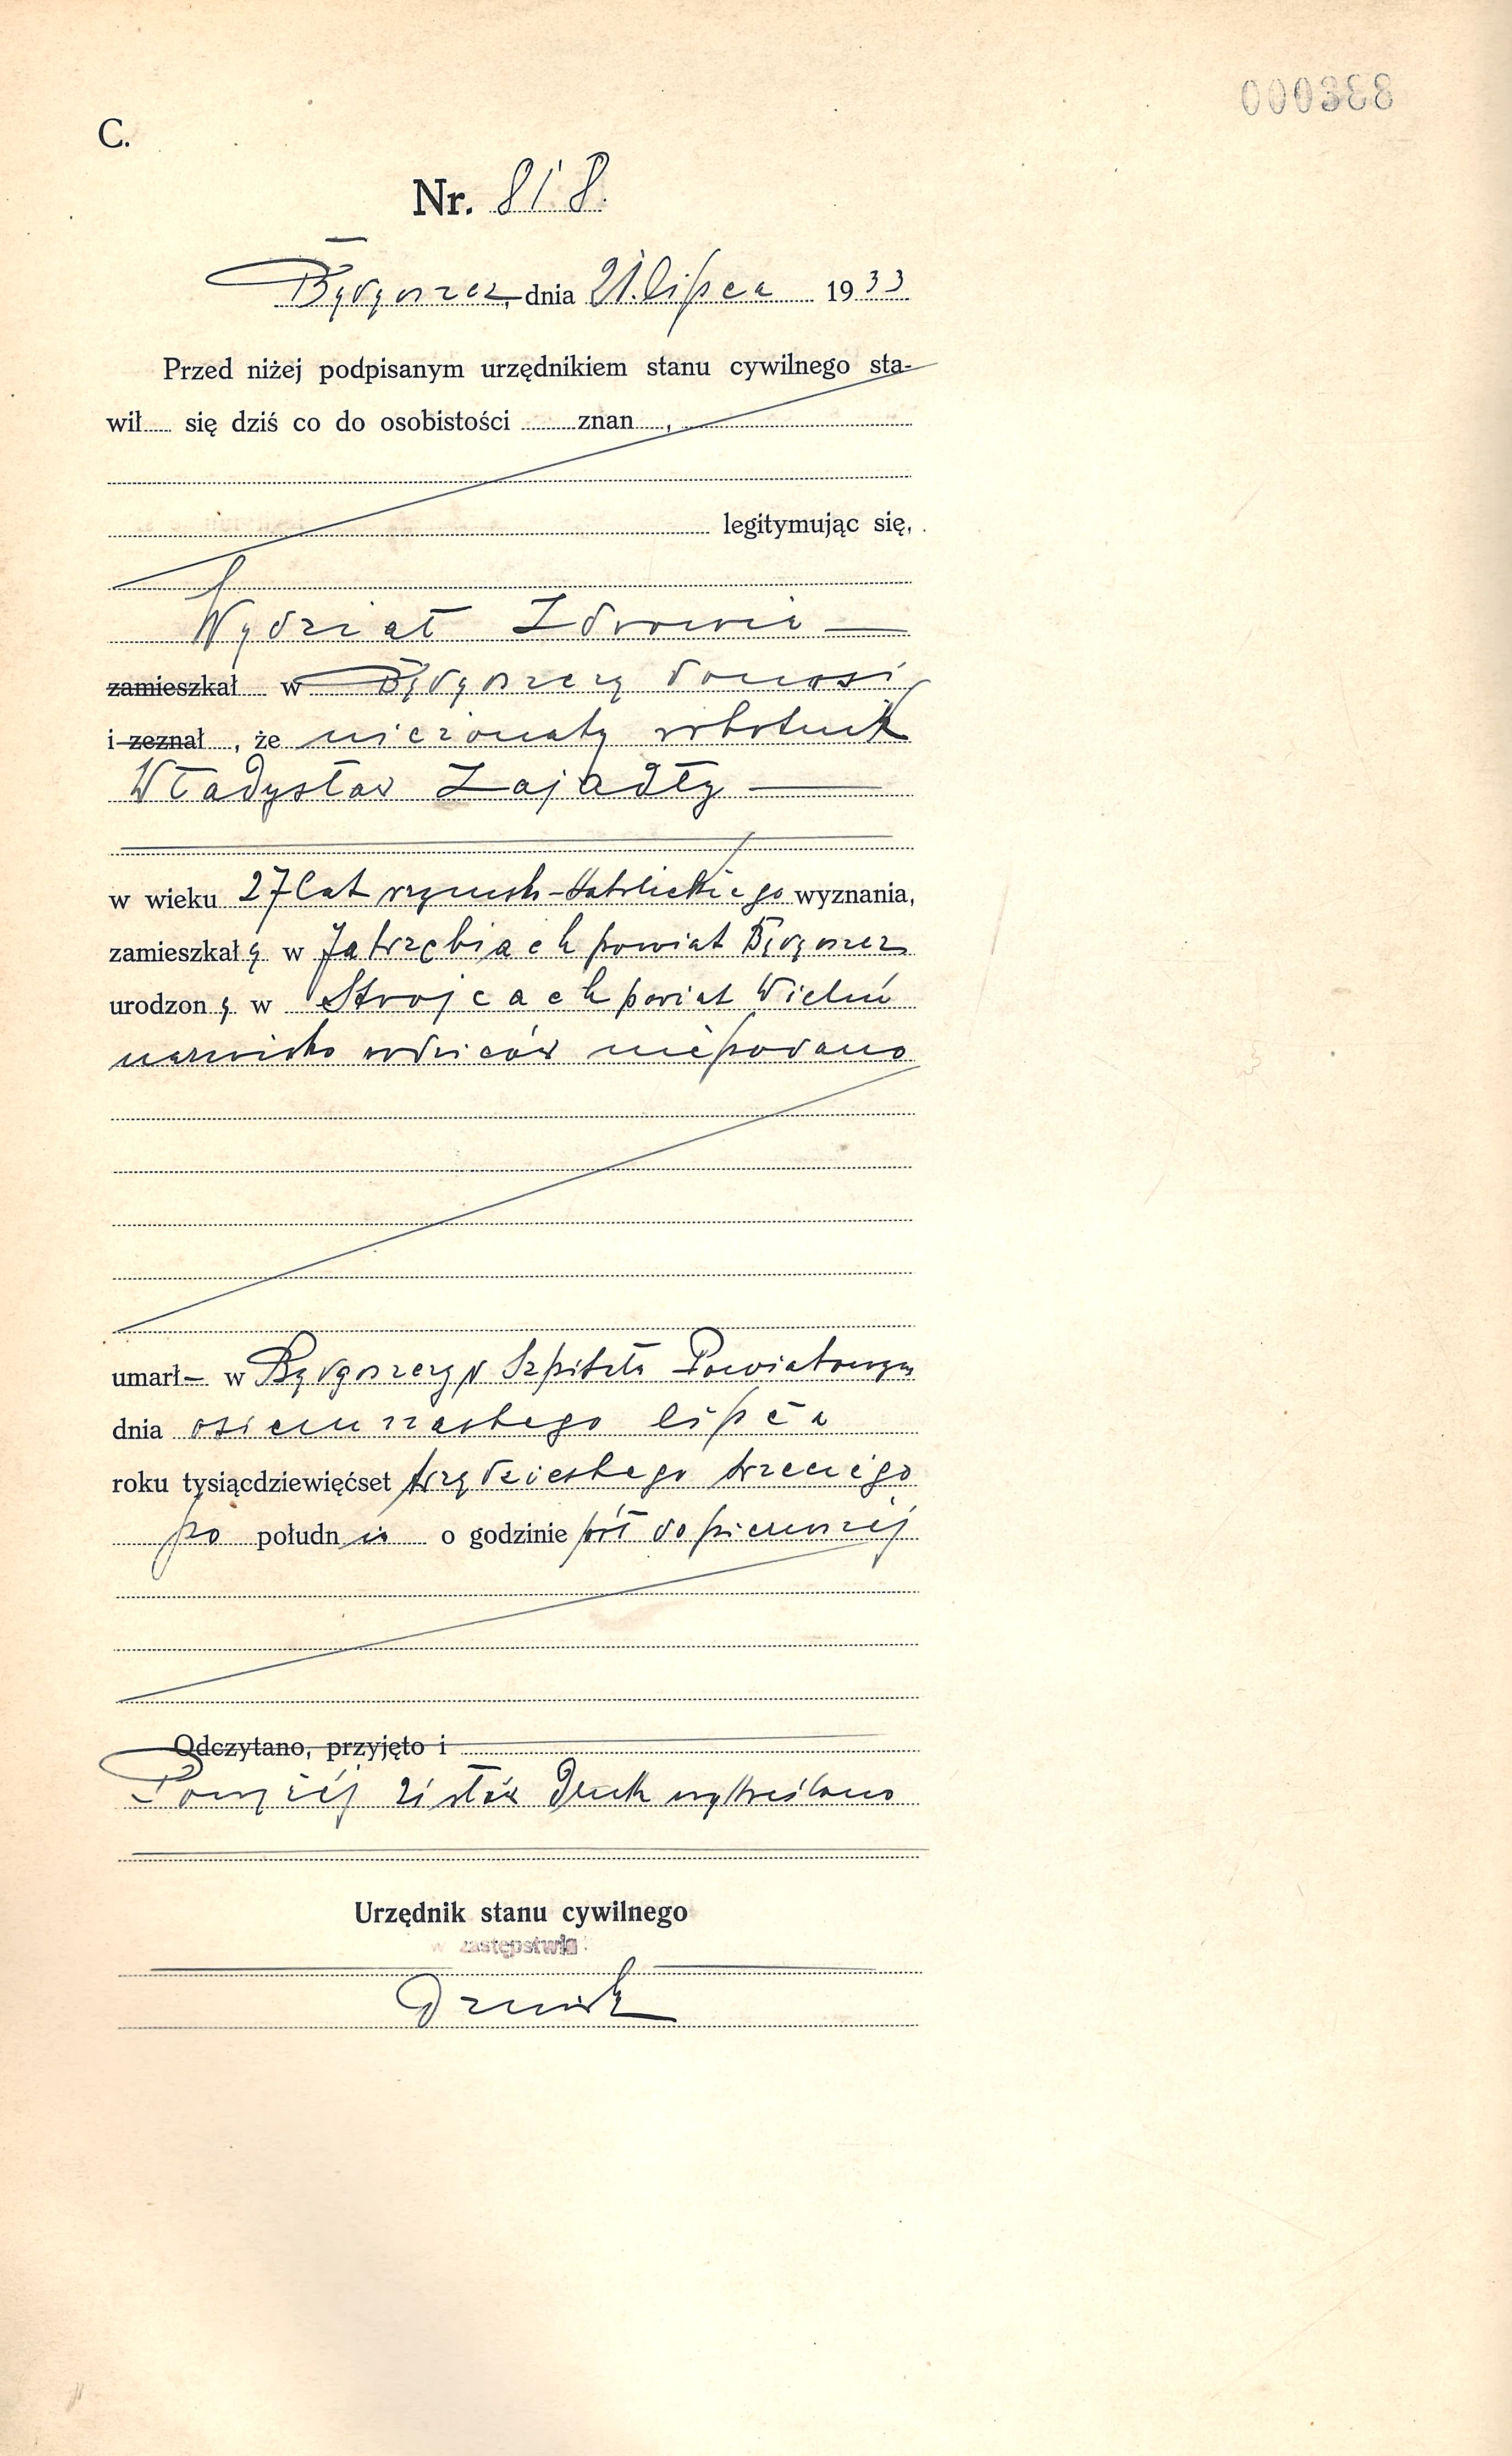 000388
C.
Nr. 818.
Bydgoszcz, dnia 21. lipca 1933
Przed niżej podpisanym urzędnikiem stanu cywilnego sta-
wił się dziś co do osobistości znan ,
legitymując się,
Wydział Zdrowia
zamieszkał w Bydgoszczy donosi
i zeznał , że nieżonaty robotnik
Władysław Zajadły
w wieku 27 lat rzymsk-katolickiego wyznania,
zamieszkały w Jatrzębiach powiat Bydgoszcz
urodzony w Strojcach powiat Wieluń
nazwisko rodziców niepodano
umarł w Bydgoszczy w Szpitalu Powiatowym
dnia osiemnastego lipca
roku tysiącdziewięćset trzydziestego trzeciego
po południu o godzinie pół do pierwszej
Odczytano, przyjęto i
Powyżej słów druk wykreślono
Urzędnik stanu cywilnego
w zastępstwie